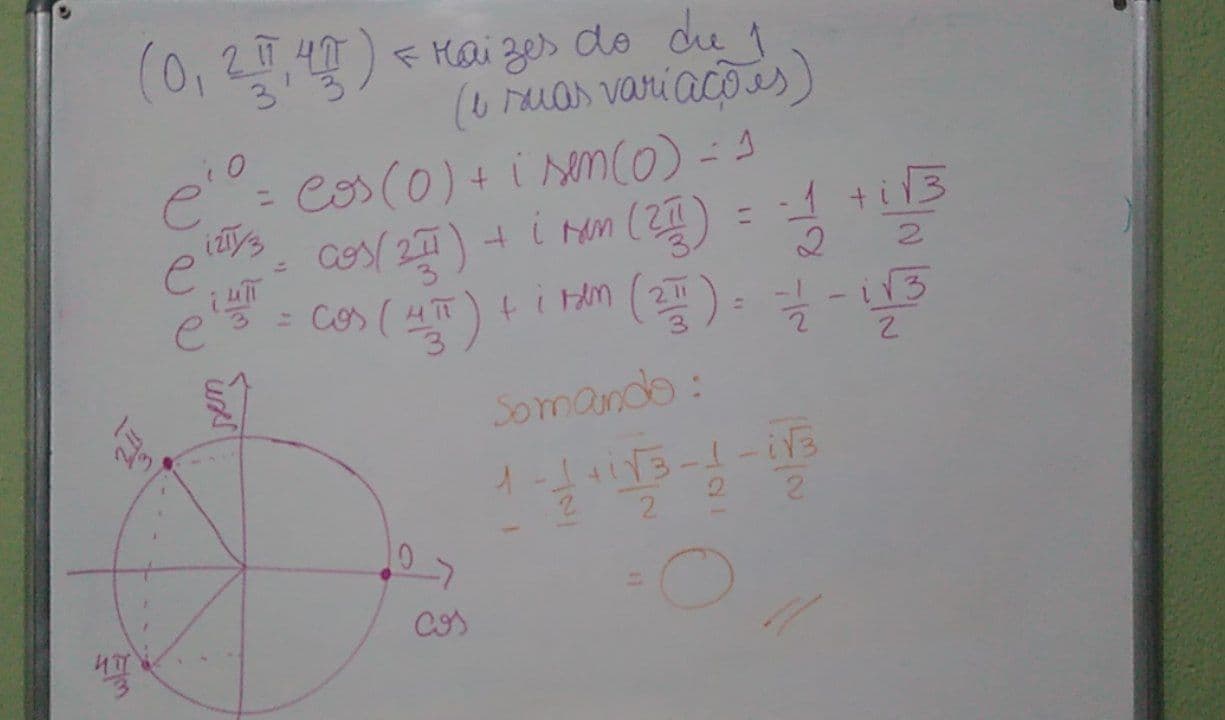 (0, 2π/3, 4π/3) ← raizes do de 1
(e suas variações)
e^{i0} = cos(0) + i sen(0) = 1
e^{i2π/3} = cos(2π/3) + i sen(2π/3) = -1/2 + i√3/2
e^{i4π/3} = cos(4π/3) + i sen(2π/3) = -1/2 - i√3/2
sen
2π/3
0
cos
4π/3
Somando:
1 - 1/2 + i√3/2 - 1/2 - i√3/2
= 0 //